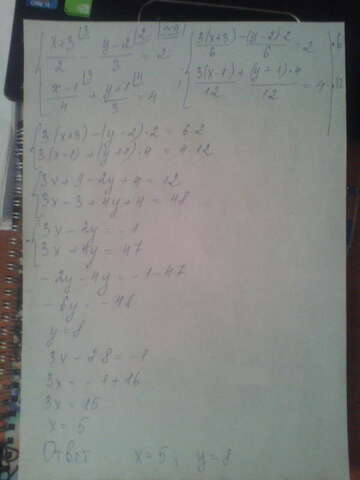 { (x+3)/2 - (y-2)/3 = 2 { (3(x+3)-(y-2)·2)/6 = 2 |·6
{ (x-1)/4 + (y+1)/3 = 4 { (3(x-1)+(y+1)·4)/12 = 4 |·12
{ 3(x+3)-(y-2)·2 = 6·2
3(x-1)+(y+1)·4 = 4·12
{ 3x+9-2y+4=12
3x-3+4y+4=48
{ 3x-2y=-1
3x+4y=47
-2y-4y=-1-47
-6y=-48
y=8
3x-2·8=-1
3x=-1+16
3x=15
x=5
Ответ x=5; y=8